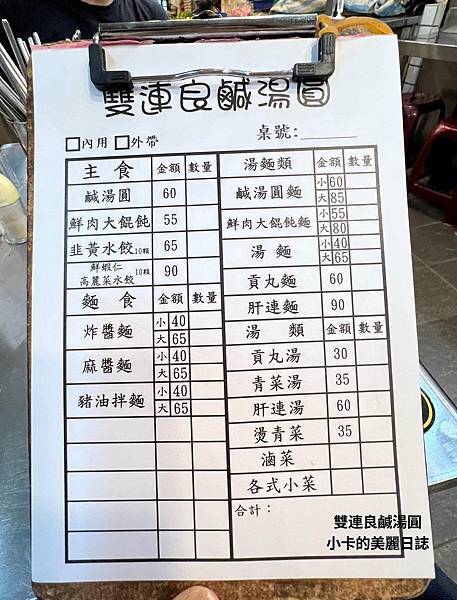 雙連良鹹湯圓
□內用 □外帶 桌號:
主食 金額 數量
鹹湯圓 60
鮮肉大餛飩 55
韭黃水餃10顆 65
鮮蝦仁
高麗菜水餃 10顆 90
麵食 金額 數量
炸醬麵 小 40
大 65
麻醬麵 小 40
大 65
豬油拌麵 小 40
大 65
湯麵類 金額 數量
鹹湯圓麵 小 60
大 85
鮮肉大餛飩麵 小 55
大 80
湯麵 小 40
大 65
貢丸麵 60
肝連麵 90
湯類 金額 數量
貢丸湯 30
青菜湯 35
肝連湯 60
燙青菜 35
滷菜
各式小菜
合計：
雙連良鹹湯圓
小卡的美麗日誌